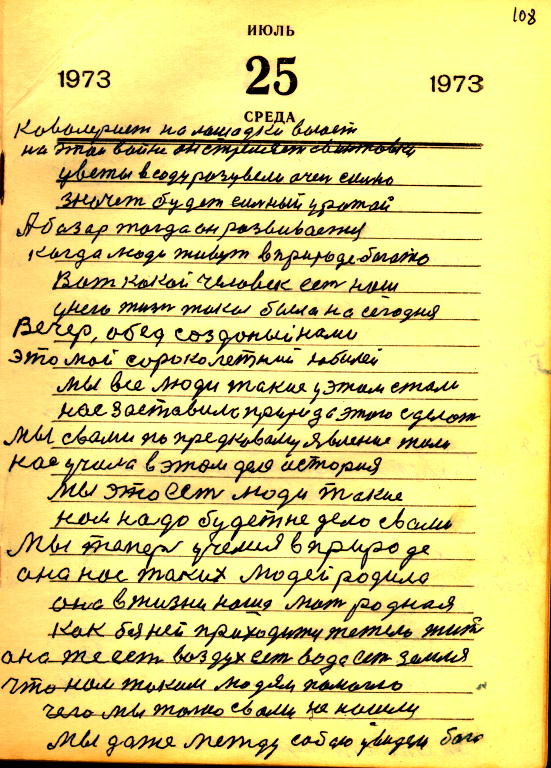 108
ИЮЛЬ
1973 25 1973
СРЕДА
Ковалерист на лашадки воюет
на этой войне он стреляет свинтовки
цветы в саду розцвели очен силно
значет будет силный урожай
А базар тогда он розвивается
когда люди живут в природе богато
Вот какой человек ест наш
унего жизн такая была на сегодня
Вечер, обед создоный нами
это мой сороколетний юбилей
мы все люди такие у этом стали
нас заставила природа этого сделат
Мы свами по предковому явление
нас учила в этом деля история
мы это ест люди такие
нам надо будет не дело свами
Мы тапер учемся в природе
она нас таких людей родила
она в жизни наша мат родная
как бы ней приходит жит
она же ест воздух ест вода ест земля
что нам таким людям помогло
чего мы толко свами не нашли
мы даже между собою увидели бога